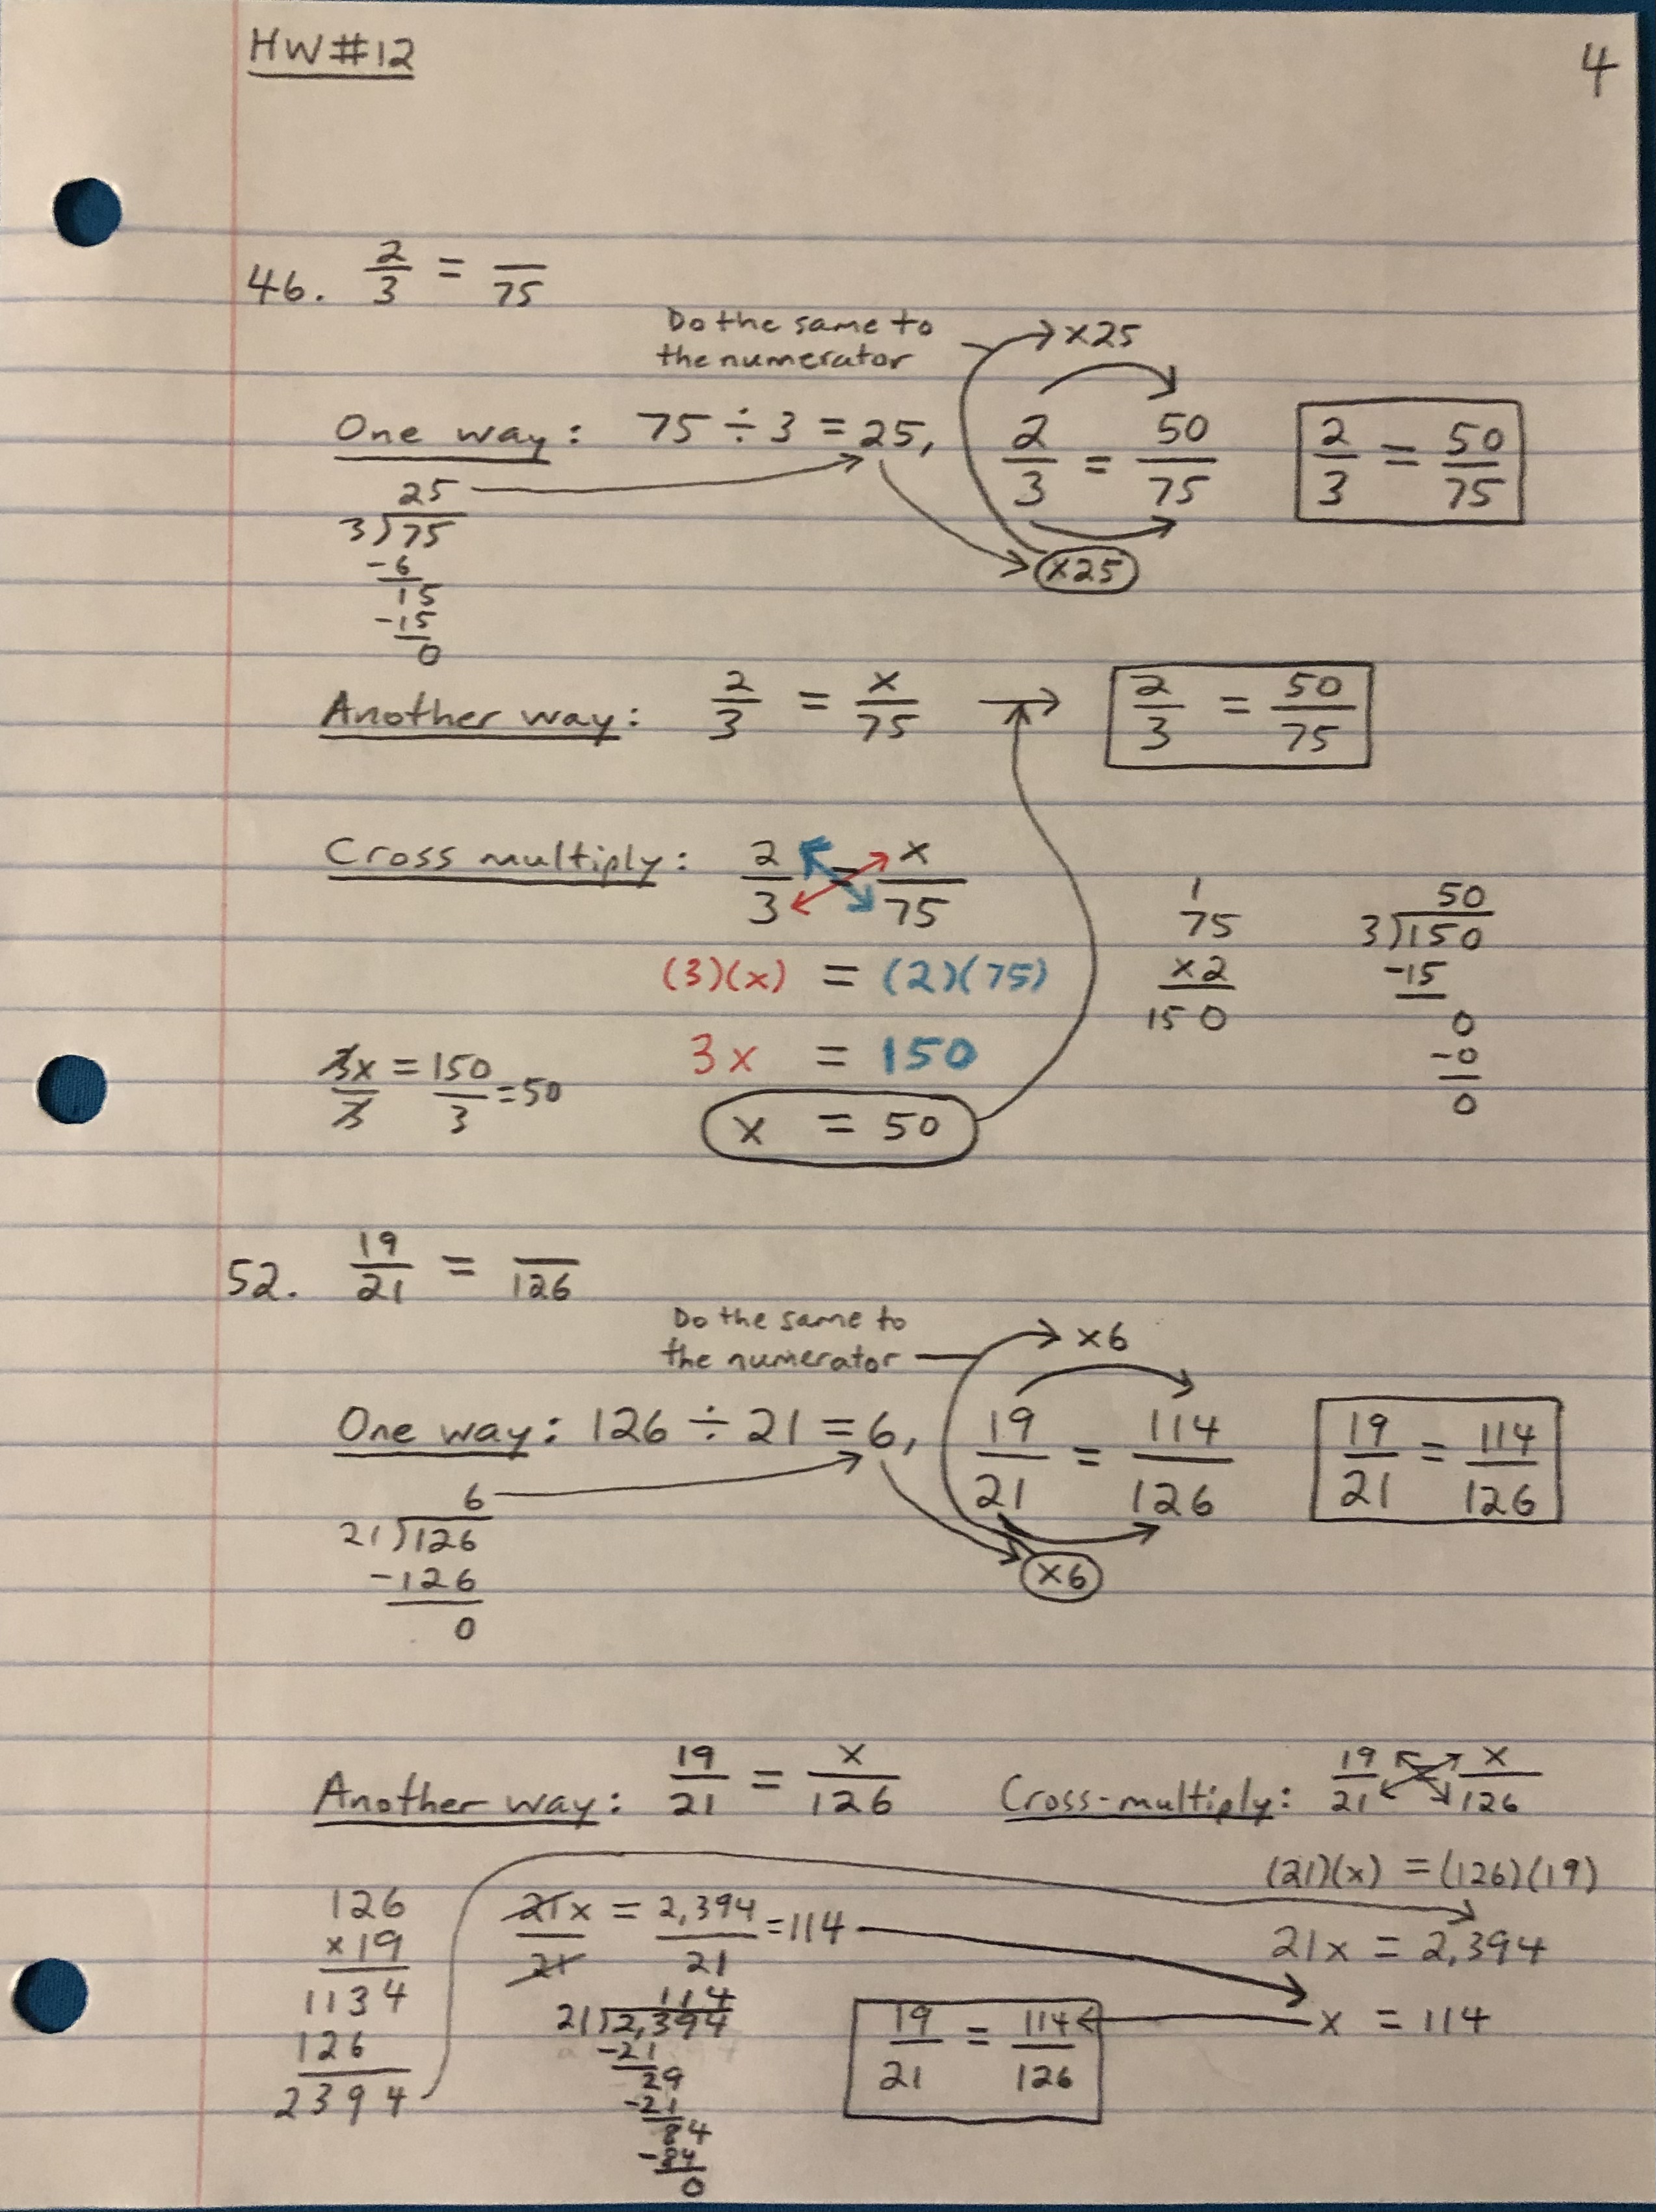 HW#12
4
46. 2/3 = __/75
Do the same to
the numerator
×25
One way: 75 ÷ 3 = 25, 2/3 = 50/75
2/3 = 50/75
×25
25
3)75
-6
15
-15
0
Another way: 2/3 = x/75 → 2/3 = 50/75
Cross multiply: 2/3 = x/75
(3)(x) = (2)(75)
3x = 150
x = 50
3x/3 = 150/3 = 50
1
75
×2
150
50
3)150
-15
0
-0
0
52. 19/21 = __/126
Do the same to
the numerator
×6
One way: 126 ÷ 21 = 6, 19/21 = 114/126
19/21 = 114/126
×6
6
21)126
-126
0
Another way: 19/21 = x/126
Cross-multiply: 19/21 = x/126
(21)(x) = (126)(19)
21x = 2,394
x = 114
126
×19
1134
126
2394
21x/21 = 2,394/21 = 114
114
21)2,394
-21
29
-21
84
-84
0
19/21 = 114/126